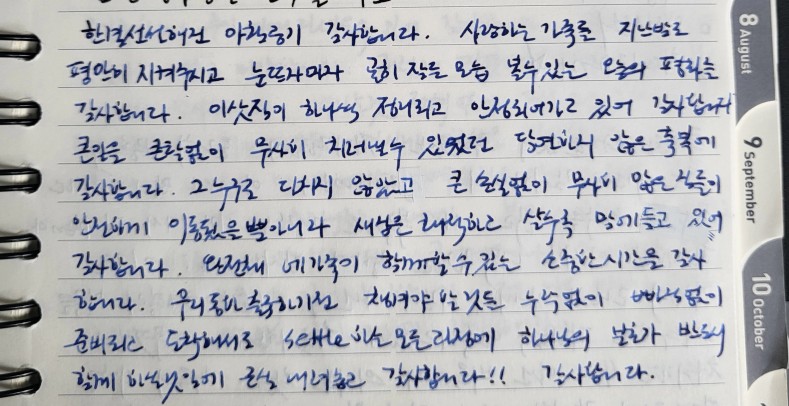 감사합니다. 사랑하는 가족을 지난밤도
평안히 지켜주시고 눈뜨자마자 곤히 잠든 모습 볼 수 있는 오늘의 평화를
감사합니다. 이삿짐이 하나씩 정리되고 안정되어가고 있어 감사합니다
큰일을 큰탈없이 무사히 치러낼 수 있었던 당연하지 않은 축복에
감사합니다. 그 누구도 다치지 않았고 큰 손실없이 무사히 많은 짐들이
안전하게 이동됐을 뿐아니라 새집은 쾌적하고 살수록 맘에들고 있어
감사합니다. 완전체 네가족이 함께할 수 있는 소중한 시간을 감사
합니다. 무리동반 출국하기전 챙겨야 할 것들 누락없이 빠짐없이
준비되고 도착해서도 settle 하는 모든 과정에 하나님의 보호가 반드시
함께 하실 것임에 근심 내려놓고 감사합니다!! 감사합니다.
8 August
9 September
10 October